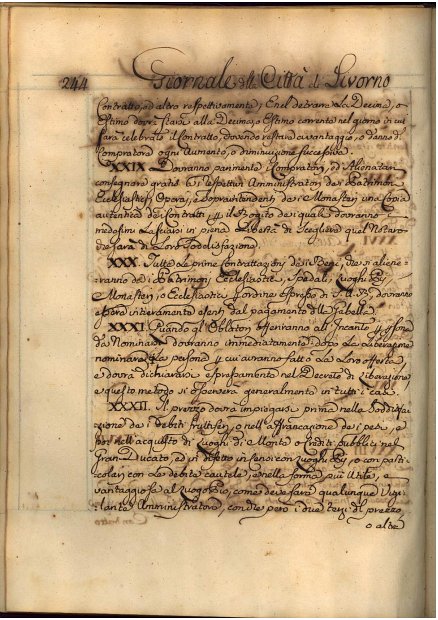 244 Giornale della Città di Livorno
Contratto, od altro respettivamente; E nel detrarre la Decima, o
Estimo dovrà starsi alla Decima, o Estimo corrente nel giorno in cui
sarà celebrato il contratto, dovendo restare a vantaggio, o danno di
Compratore ogni aumento, o diminuzione successiva.
XXIX Dovranno parimente i Compratori, od Alienatari
consegnare gratis a i respettivi Amministratori dei Patrimoni
Ecclesiastici Operai, e Soprintendenti dei Monasteri una Copia
autentica dei contratti p il Rogito dei quali dovranno i
medesimi Lasciarsi in piena Libertà di scegliere quel Notaro
che sarà di Loro Sodisfazione.
XXX. Tutte le prime contrattazioni dei Beni, che si aliene=
=ranno dei Patrimoni Ecclesiastici, Spedali, Luoghi Pij
Monasteri, o Ecclesiastici p ordine espresso di S. A. R., dovranno
essere interamente esenti dal pagamento della Gabella.
XXXI Quando gli Oblatori offeriranno all'Incanto p p[er]sone
da Nominarsi dovranno immediatamente dopo la Liberazione
nominare la persona p cui avranno fatta la Loro offerta,
e dovrà dichiararsi espressamente nel Decreto di Liberazione,
e questo metodo si osserverà generalmente in tutti i casi.
XXXII. Il prezzo dovrà impiegarsi prima nella Soddisfa=
zione dei debiti fruttiferi, o nell'affrancazione dei pesi, e
poi nell'acquisto di Luoghi di Monte o Crediti pubblici nel
Gran-Ducato, ed in difetto in Censi con Luoghi Pij, o con parti=
colari con le debite cautele, e nella forma più Utile, e
vantaggiosa al Luogo Pio, come deve fare qualunque Vigi=
lante Amministratore, con che però i due terzi di prezzo,
o altre